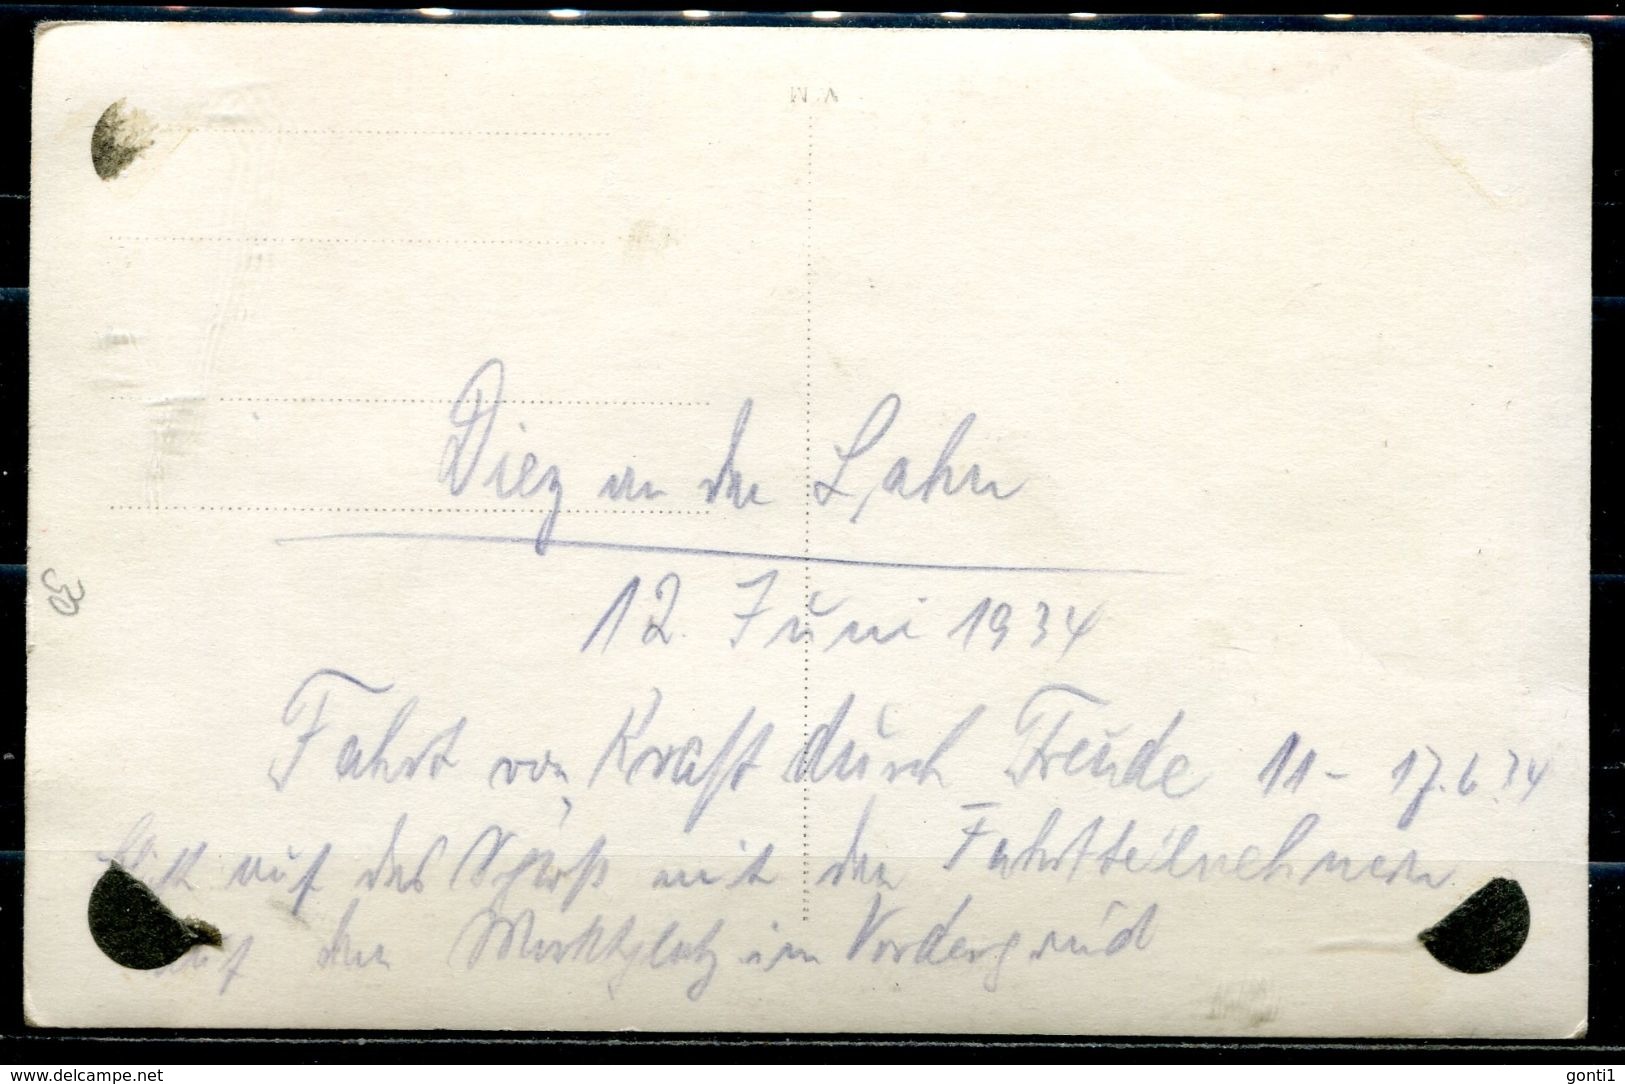 Diez an der Lahn
12. Juni 1934
Fahrt von Kraft durch Freude 11 - 17.6.34
Blick auf das Schloß mit den Fahrtteilnehmern
auf dem Marktplatz im Vordergrund
30
delcampe.net
gonti1